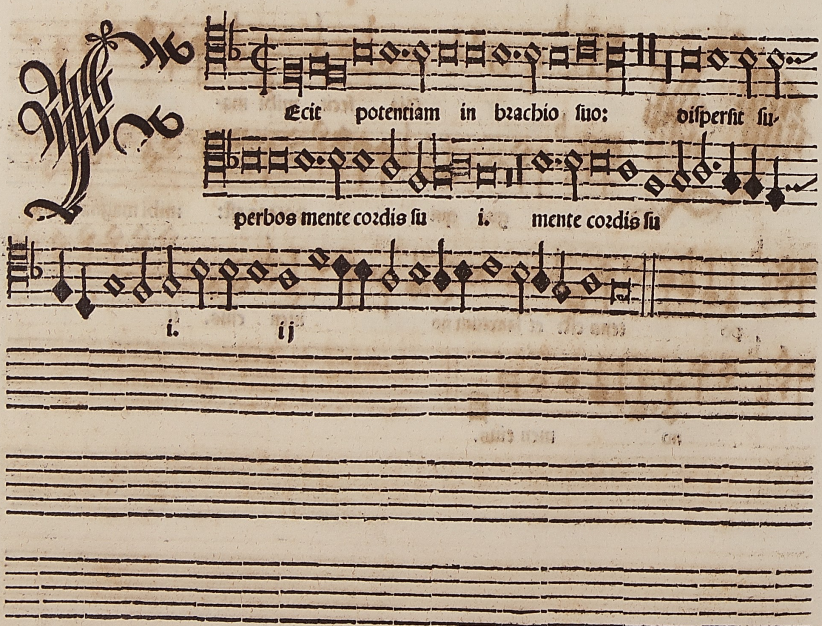 Fecit potentiam in brachio suo: dispersit su-
perbos mente cordis su i. mente cordis su
i. ij